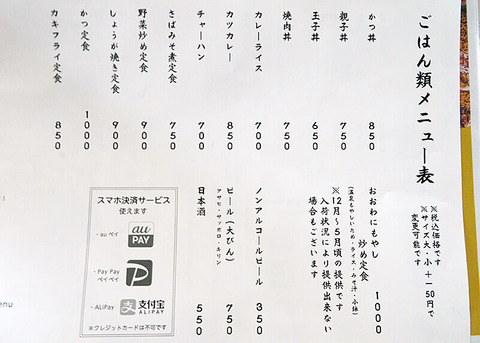 ごはん類メニュー表
※税込価格です
※サイズ大・小 +-50円で
変更可能です
かつ丼 850
親子丼 750
玉子丼 650
焼肉丼 750
カレーライス 700
カツカレー 850
チャーハン 700
さばみそ煮定食 750
野菜炒め定食 900
しょうが焼き定食 900
かつ定食 1000
カキフライ定食 850
おおわにもやし
炒め定食 1000
※12月~5月頃の提供です
入荷状況により提供出来ない
場合もございます
ノンアルコールビール 350
ビール(大びん) 750
アサヒ・サッポロ・キリン
日本酒 550
スマホ決済サービス
使えます
・au ペイ
au
PAY
・Pay Pay
ペイペイ
P
・ALiPay
支
支付宝
ALIPAY
※クレジットカードは不可です
enu